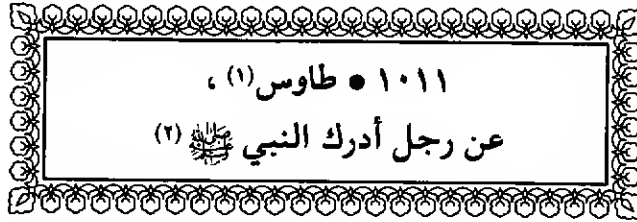 ١٠١١ • طاوس(١) ،
عن رجل أدرك النبي ﷺ (٢)